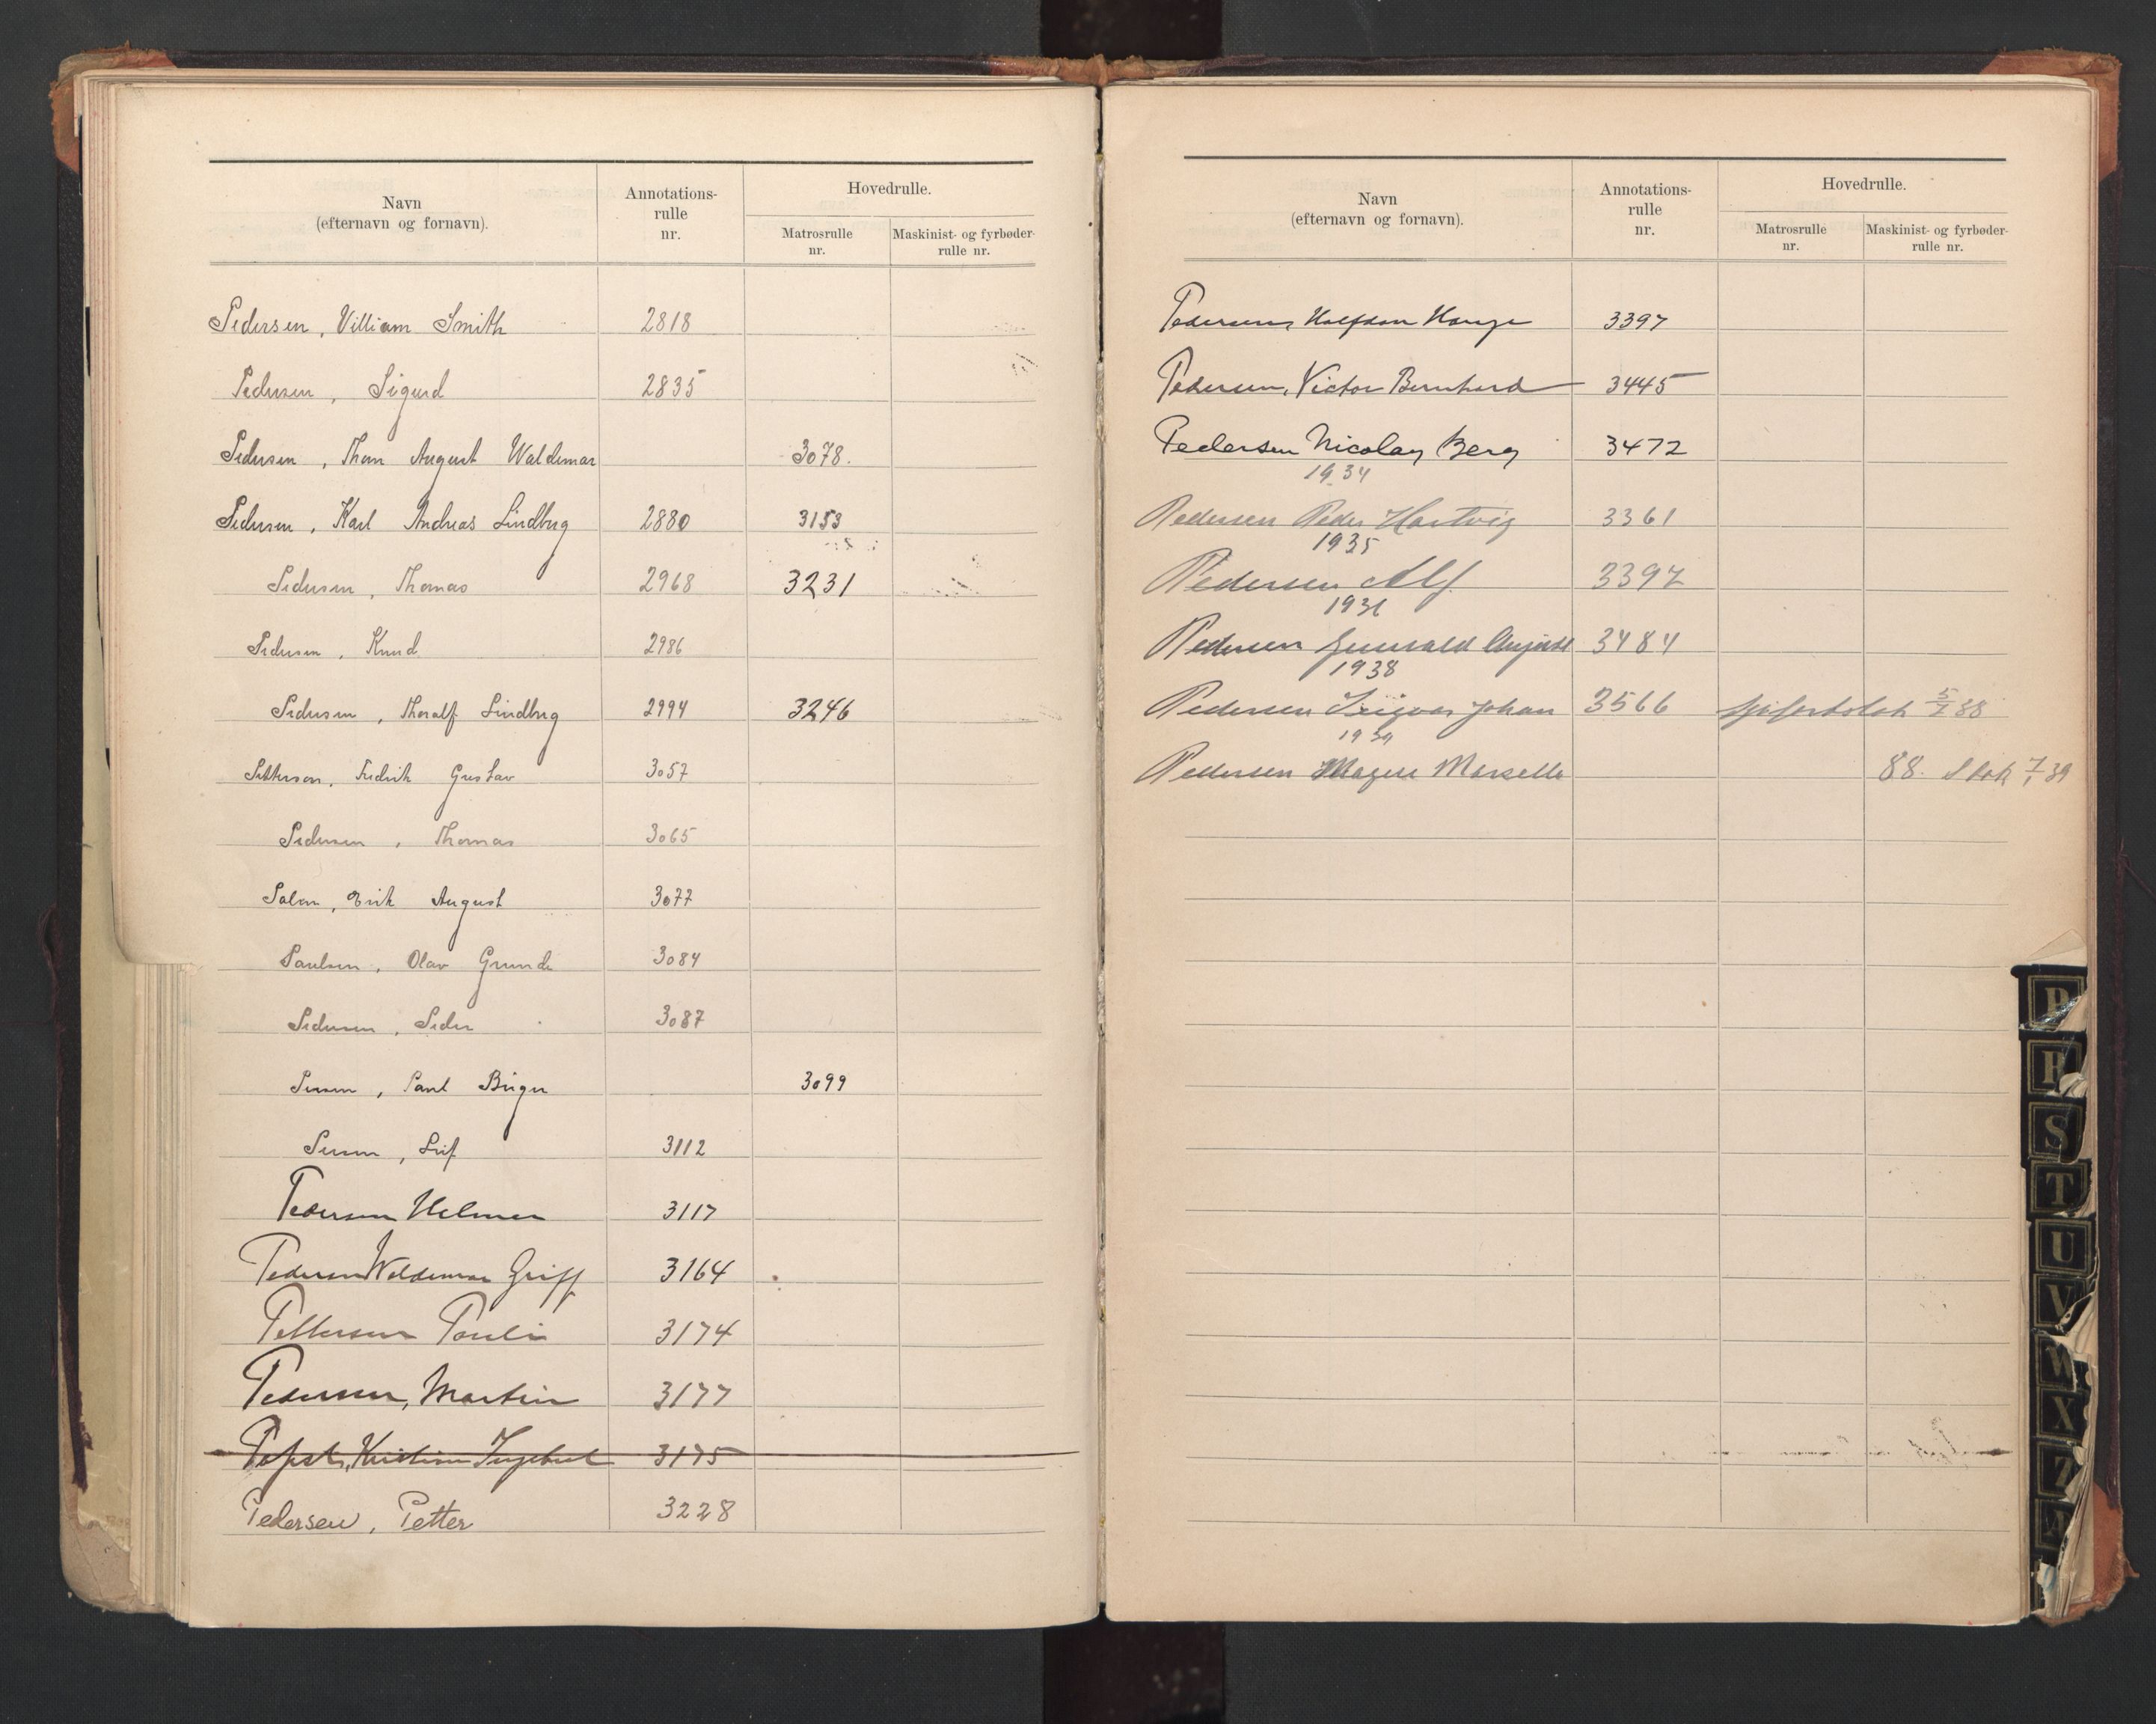 Navn
(efternavn og fornavn).
Annotations-
rulle
nr.
Hovedrulle.
Matrosrulle
nr.
Maskinist- og fyrbøder-
rulle nr.
Pedersen, Villiam Smith 2818
Pedersen, Sigurd 2835
Pedersen, Thom August Waldemar 3078.
Pedersen, Karl Andreas Lindberg 2880 3153
Pedersen, Thomas 2968 3231
Pedersen, Knud 2986
Pedersen, Thoralf Lindberg 2994 3246
Petterson, Fredrik Gustav 3057
Pedersen, Thomas 3065
Palm, Erik August 3077
Paulsen, Olav Grunde 3084
Pedersen, Peder 3087
Persen, Paul Birger 3099
Persen, Leif 3112
Pedersen Helmer 3117
Pedersen Waldemar Griff 3164
Pettersen Pauli 3174
Pedersen, Martin 3177
Kristian 3175
Pedersen, Petter 3228
Navn
(efternavn og fornavn).
Annotations-
rulle
nr.
Hovedrulle.
Matrosrulle
nr.
Maskinist- og fyrbøder-
rulle nr.
Pedersen, Halfdan Hauge 3397
Pedersen, Victor Bernhard 3445
Pedersen Nicolay Berg 3472
1934
Pedersen Peder Hartvig 3361
1935
Pedersen Alf 3397
1936
Pedersen Gunvald August 3484
1938
Pedersen Johan 3566
1939
Pedersen Magne 88.
P
R
S
T
U
V
W
X
Z